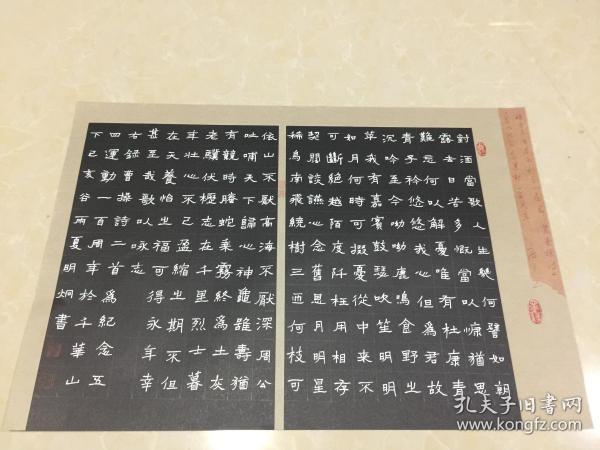 對酒當歌人生幾何譬如朝
露去日苦多慨當以慷猶思
難忘何以解憂唯有杜康青
青子衿悠悠我心但為君故
沉吟至今呦呦鹿鳴食野之
苹我有嘉賓鼓瑟吹笙明明
如月何時可掇憂從中來不
可斷絕越陌度阡枉用相存
契闊談讌心念舊恩月明星
稀烏南飛繞樹三匝何枝可
依山不厭高海不厭深周公
吐哺天下歸心神龜雖壽猶
有競時騰蛇乘霧終為土灰
老驥伏櫪志在千里烈士暮
年壯心不已盈縮之期不但
在天養怡之福可得永年幸
甚至哉歌以詠志
右錄曹操詩二首為紀念五
四運動一百周年於千華山
下己亥谷雨夏明炯書
孔夫子旧书网
www.kongfz.com